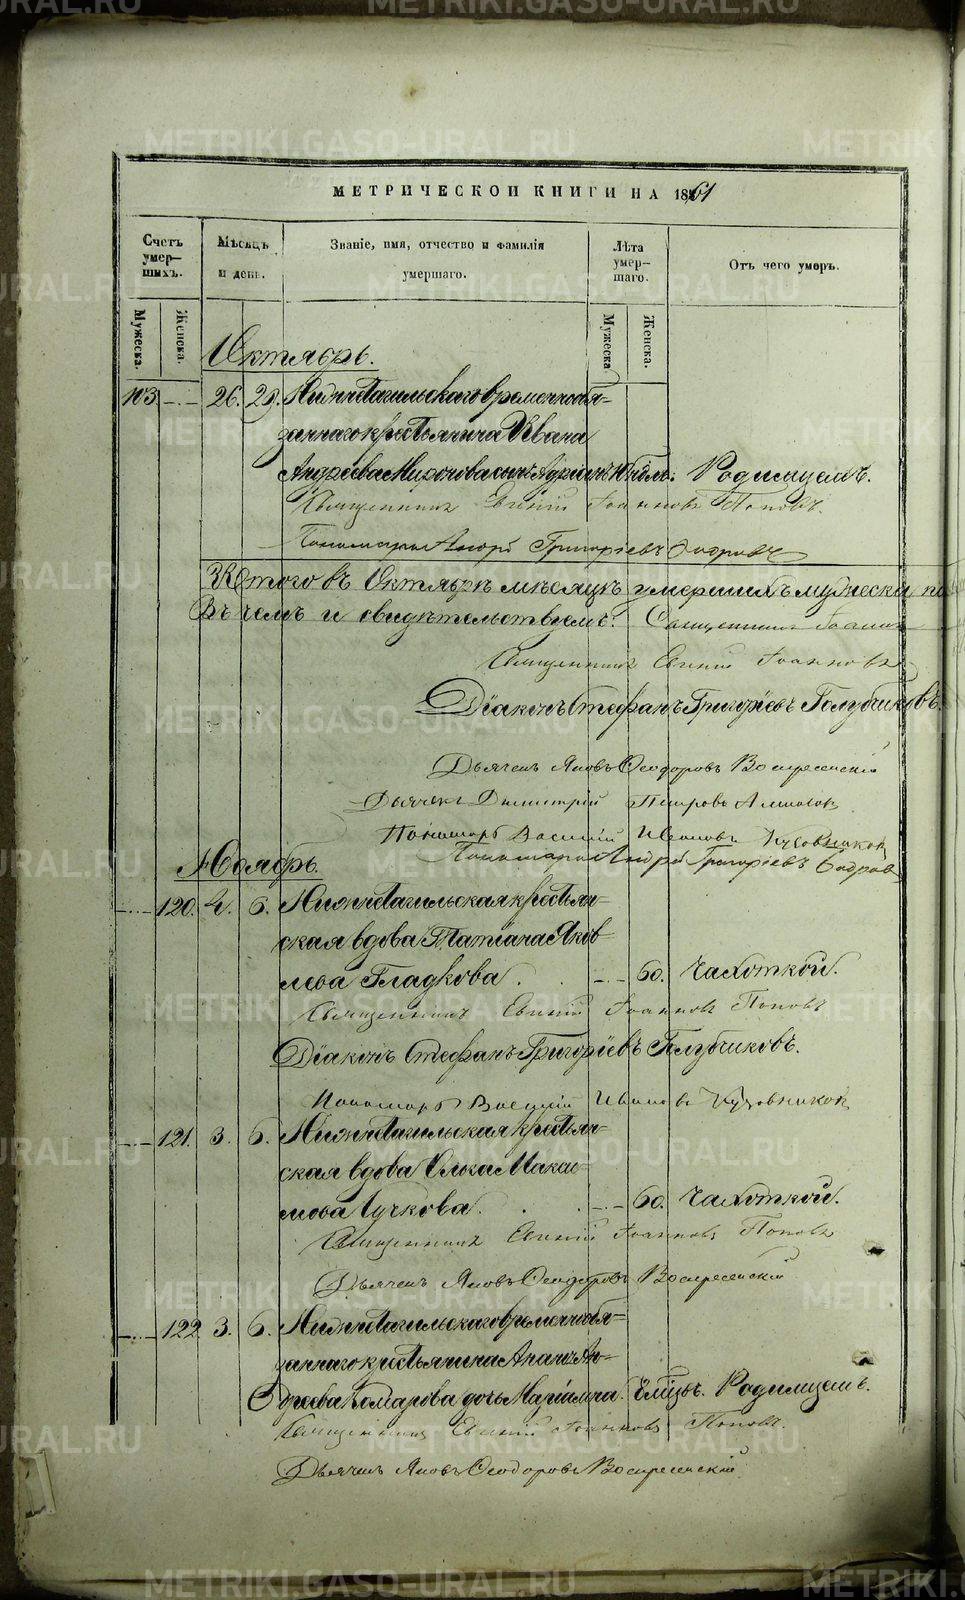 МЕТРИЧЕСКОЙ КНИГИ НА 1861
Счетъ умер-шихъ.
Мѣсяцъ и день.
Званіе, имя, отчество и фамилія умершаго.
Лѣта умер-шаго.
Отъ чего умеръ.
Мужеска.
Женска.
Мужеска
Женска.
Октябрь.
103. 26. 28. Нижнетагильскаго временнообя-
заннаго крестьянина Ивана
Андреева Миронова сынъ Адріанъ Родимцемъ.
Священникъ Евгеній Іоанновъ Поповъ.
Пономарь Андрей Григорьевъ Бобровъ
Итого въ Октябрѣ мѣсяцѣ умершихъ мужеска по
Въ чемъ и свидѣтельствуемъ: Священникъ Іоаннъ
Священникъ Евгеній Іоанновъ
Діаконъ Стефанъ Григоріевъ Голубчиковъ.
Дьячекъ Яковъ Ѳеодоровъ Воскресенскій
Дьячекъ Димитрій Петровъ
Пономарь Василій Ивановъ Кузовников
Пономарь Андрей Григорьевъ Бобровъ
Ноябрь.
120. 4. 6. Нижнетагильская крестьян-
ская вдова Татіана Яков-
лева Гладкова 60. Чахоткой.
Священникъ Евгеній Іоанновъ Поповъ
Діаконъ Стефанъ Григоріевъ Голубчиковъ.
Пономарь Василій Ивановъ Кузовников
121. 3. 6. Нижнетагильская крестьян-
ская вдова Улька Макси-
мова Лучкова. 60. Чахоткой.
Священникъ Евгеній Іоанновъ Поповъ
Дьячекъ Яковъ Ѳеодоровъ Воскресенскій
122 3. 6. Нижнетагильскаго временнообя-
заннаго крестьянина Ананія Ан-
дреева Комарова дочь Маріамна. Родимцемъ.
Священникъ Евгеній Іоанновъ Поповъ.
Дьячекъ Яковъ Ѳеодоровъ Воскресенскій
METRIKI.GASO-URAL.RU